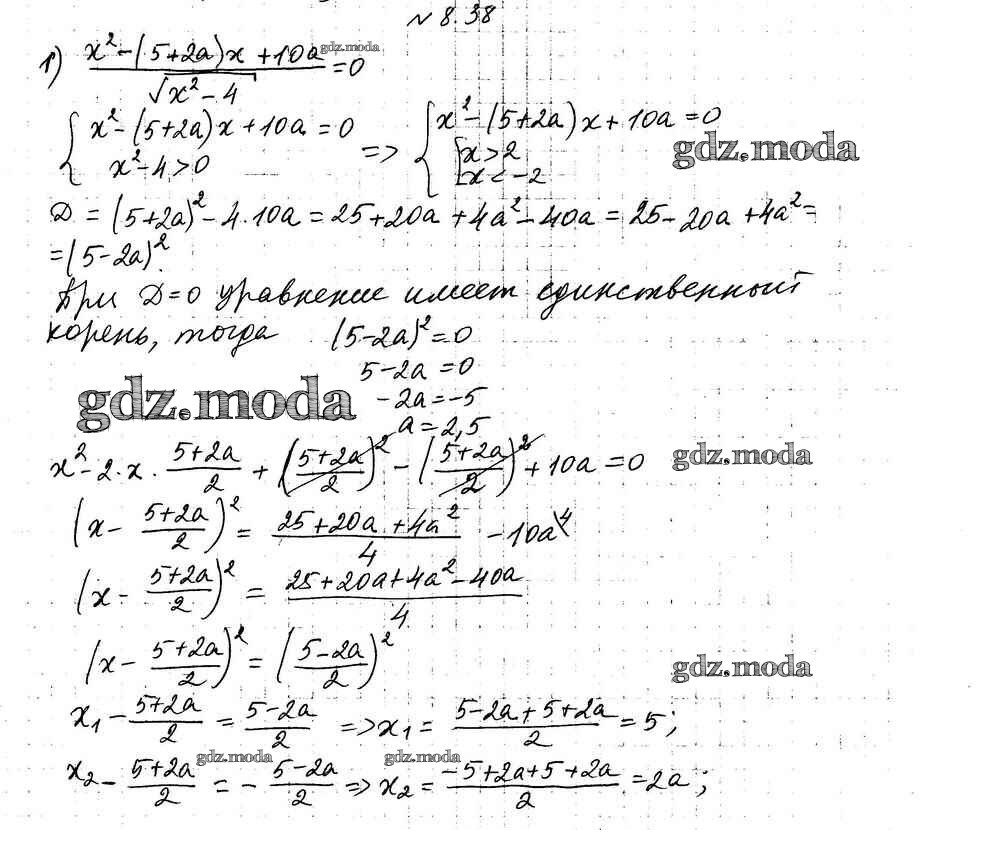 № 8.38
1) (x² – (5+2a)x + 10a)/√(x² – 4) = 0 gdz.moda
{ x² – (5+2a)x + 10a = 0 => { x² – (5+2a)x + 10a = 0
x² – 4 > 0 [ x > 2
x < –2
gdz.moda
Д = (5+2a)² – 4·10a = 25 + 20a + 4a² – 40a = 25 – 20a + 4a² =
= (5 – 2a)².
При Д = 0 уравнение имеет единственный
корень, тогда (5 – 2a)² = 0
5 – 2a = 0
– 2a = –5
a = 2,5
gdz.moda
x² – 2·x·(5+2a)/2 + ((5+2a)/2)² – ((5+2a)/2)² + 10a = 0 gdz.moda
(x – (5+2a)/2)² = (25 + 20a + 4a²)/4 – 10a\4
(x – (5+2a)/2)² = (25 + 20a + 4a² – 40a)/4
(x – (5+2a)/2)² = ((5 – 2a)/2)² gdz.moda
x₁ – (5+2a)/2 = (5–2a)/2 => x₁ = (5–2a+5+2a)/2 = 5;
gdz.moda gdz.moda
x₂ – (5+2a)/2 = – (5–2a)/2 => x₂ = (–5+2a+5+2a)/2 = 2a;